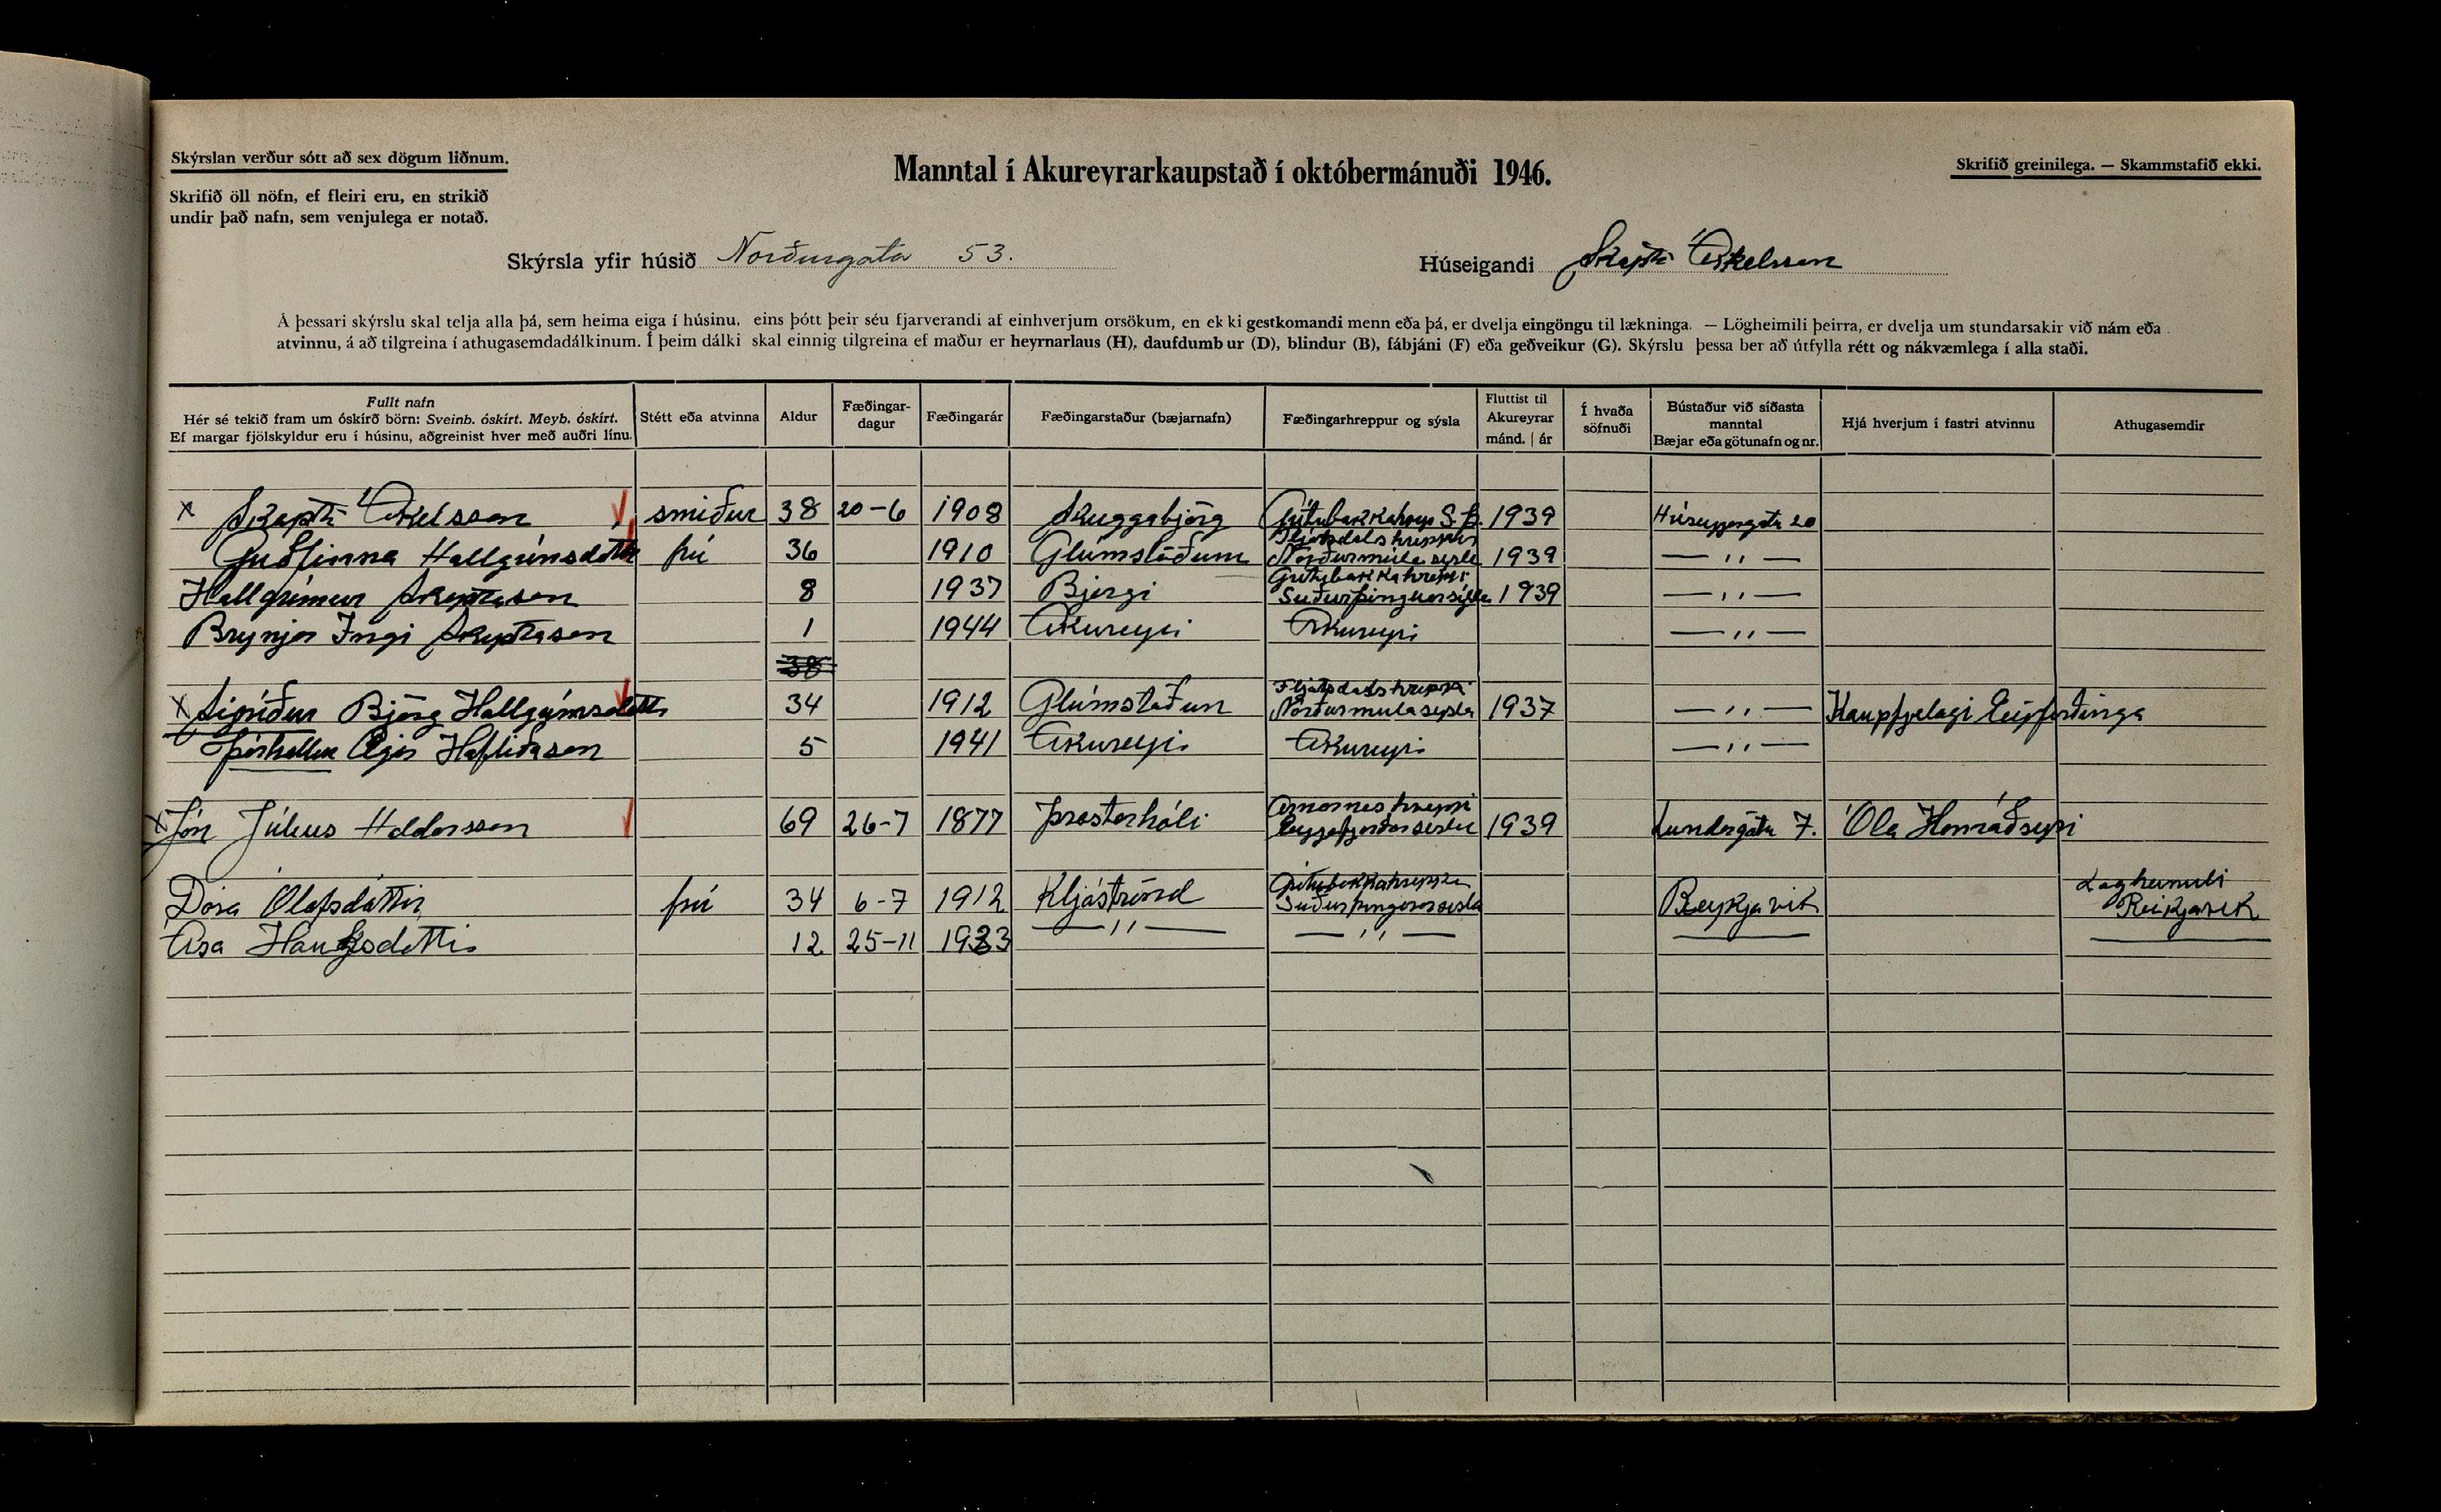 Skýrslan verður sótt að sex dögum liðnum.
Manntal í Akureyrarkaupstað í októbermánuði 1946.
Skrifið greinilega. — Skammstafið ekki.
Skrifið öll nöfn, ef fleiri eru, en strikið
undir það nafn, sem venjulega er notað.
Skýrsla yfir húsið Norðurgata 53.
Húseigandi Skapti Áskelsson
Á þessari skýrslu skal telja alla þá, sem heima eiga í húsinu, eins þótt þeir séu fjarverandi af einhverjum orsökum, en ekki gestkomandi menn eða þá, er dvelja eingöngu til lækninga. — Lögheimili þeirra, er dvelja um stundarsakir við nám eða
atvinnu, á að tilgreina í athugasemdadálkinum. Í þeim dálki skal einnig tilgreina ef maður er heyrnarlaus (H), daufdumbur (D), blindur (B), fábjáni (F) eða geðveikur (G). Skýrslu þessa ber að útfylla rétt og nákvæmlega í alla staði.
Fullt nafn
Hér sé tekið fram um óskírð börn: Sveinb. óskírt. Meyb. óskírt.
Ef margar fjölskyldur eru í húsinu, aðgreinist hver með auðri línu.
Stétt eða atvinna
Aldur
Fæðingar-
dagur
Fæðingarár
Fæðingarstaður (bæjarnafn)
Fæðingarhreppur og sýsla
Fluttist til
Akureyrar
mánd. | ár
Í hvaða
söfnuði
Bústaður við síðasta
manntal
Bæjar eða götunafn og nr.
Hjá hverjum í fastri atvinnu
Athugasemdir
x Skapti Áskelsson smiður 38 20-6 1908 Skuggabjörg Grítubakkahrep S.Þ. 1939
Fljótsdalshreppur
Guðfinna Hallgrímsdóttir frú 36 1910 Glúmstöðum Norðurmúlasysla 1939 — " —
Grítubakkahreppi
Hallgrímur Skaptason 8 1937 Bjargi Suðurþingeyarsýsla 1939 — " —
Brynjar Ingi Skaptason 1 1944 Akureyri Akureyri — " —
38
Fljótsdalshreppi
x Sigríður Björg Hallgrímsdóttir 34 1912 Glúmstaðun Norðurmulasysla 1937 — " — Kaupfjelagi Eyfirðinga
Þórhallur Ægir Hafliðason 5 1941 Akureyri Akureyri — " —
Arnarneshreppi
x Jón Júlíus Halldorsson 69 26-7 1877 Þrastarhóli 1939 Lundargáta 7. Óla
Grítubakkahreppi Logheimili
Dóra Ólafsdóttir frú 34 6-7 1912 Kljáströnd Suðurþingeyarsysla Reykjavik Reikjavik
Ása Hauksdottir 12 25-11 1933 — " — — " —